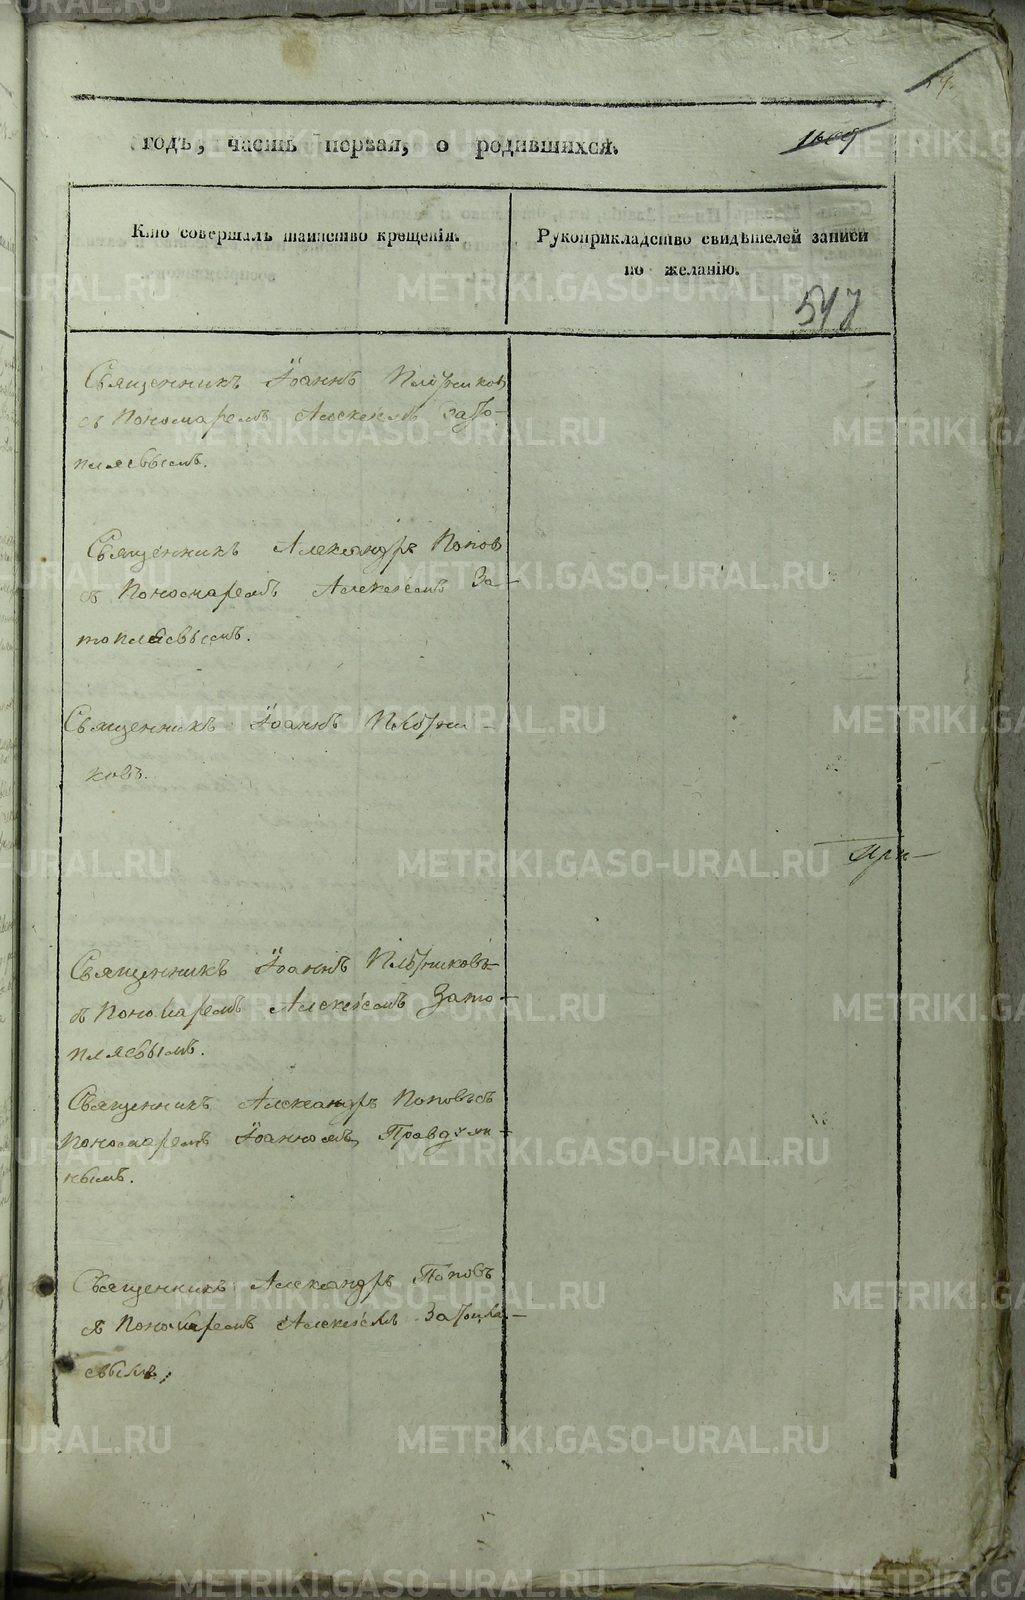 годъ, часть первая, о родившихся.
Кто совершалъ таинство крещенія.
Рукоприкладство свидѣтелей записи
по желанію.
517
Священникъ Іоаннъ Плотников
съ Пономаремъ Алексѣемъ Зато-
пляевымъ.
Священникъ Александръ Попов
съ Пономаремъ Алексѣемъ За-
топляевымъ.
Священникъ Іоаннъ Плотни-
ковъ.
При-
Священникъ Іоаннъ Плотниковъ
съ Пономаремъ Алексѣемъ Зато-
пляевымъ.
Священникъ Александръ Поповъ съ
Пономаремъ Іоанномъ
кымъ.
Священникъ Александръ Поповъ
съ Пономаремъ Алексѣемъ Затопля-
евымъ;
METRIKI.GASO-URAL.RU